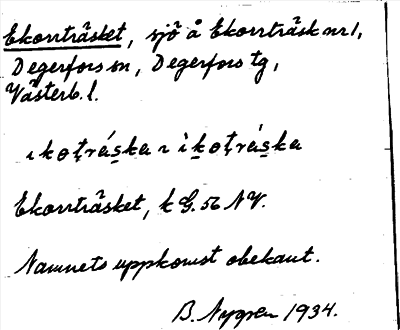 Ekorrträsket, sjö å Ekorrträsk nr 1,
Degerfors sn, Degerfors tg,
Västerb. l.
ɩkoṭrás̱ka ɩ ìḵoṭrás̱ka
Ekorrträsket, k G. 56 NV.
Namnets uppkomst obekant.
B. Nygren 1934.